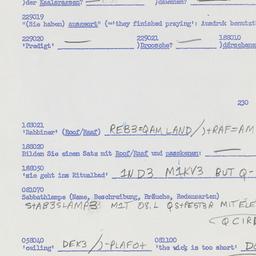 )der Kaalsrassen? )daubenen?
229019
"(Sie haben) ausgeort" (='they finished praying': Ausdruk benutzt
229020 229021 188010
'Predigt' )Droosche? )dörschene
230
163021
'Rabbiner' (Roof/Raaf) REB3=DAM LAND/)+RAF=AM
188020
Bilden Sie einen Satz mit Roof/Raaf und paaskenen:
188050
'Sie geht ins Ritualbad' 1N D3 M1KV3 BUT Q-
081070
Sabbathlampe (Name, Beschreibung, Bräuche, Redensarten)
STAB3SLAMP3 M1T OS.L QST MIT ELE
QCIR
058040 081100
'ceiling' DEK3/)-PLAFOt 'the wick is too short' D